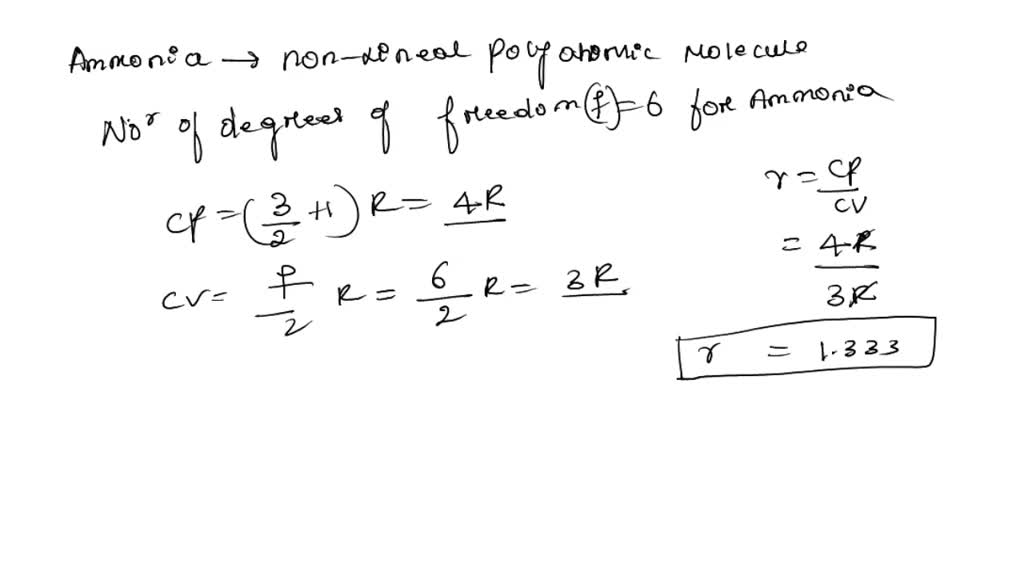 Ammonia → non-lineal polyatomic molecule
No^r of degrees of freedom (f) = 6 for Ammonia
Cp = (3/2 + 1) R = 4R
CV = f/2 R = 6/2 R = 3R.
γ = CP/CV
= 4R/3R
γ = 1.333